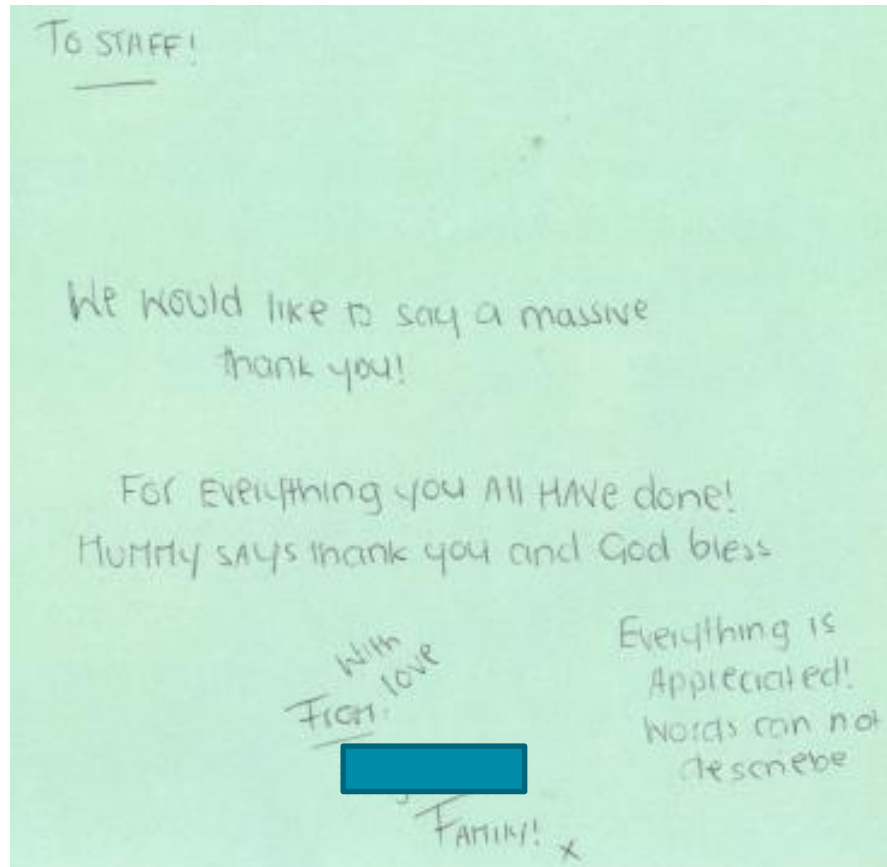 To STAFF!
We would like to say a massive
thank you!
For Everything you All HAVe done!
MUMMy SAyS thank you and God bless
With
love
From:
FAMILY! x
Everything is
Appreciated!
words can not
descriebe